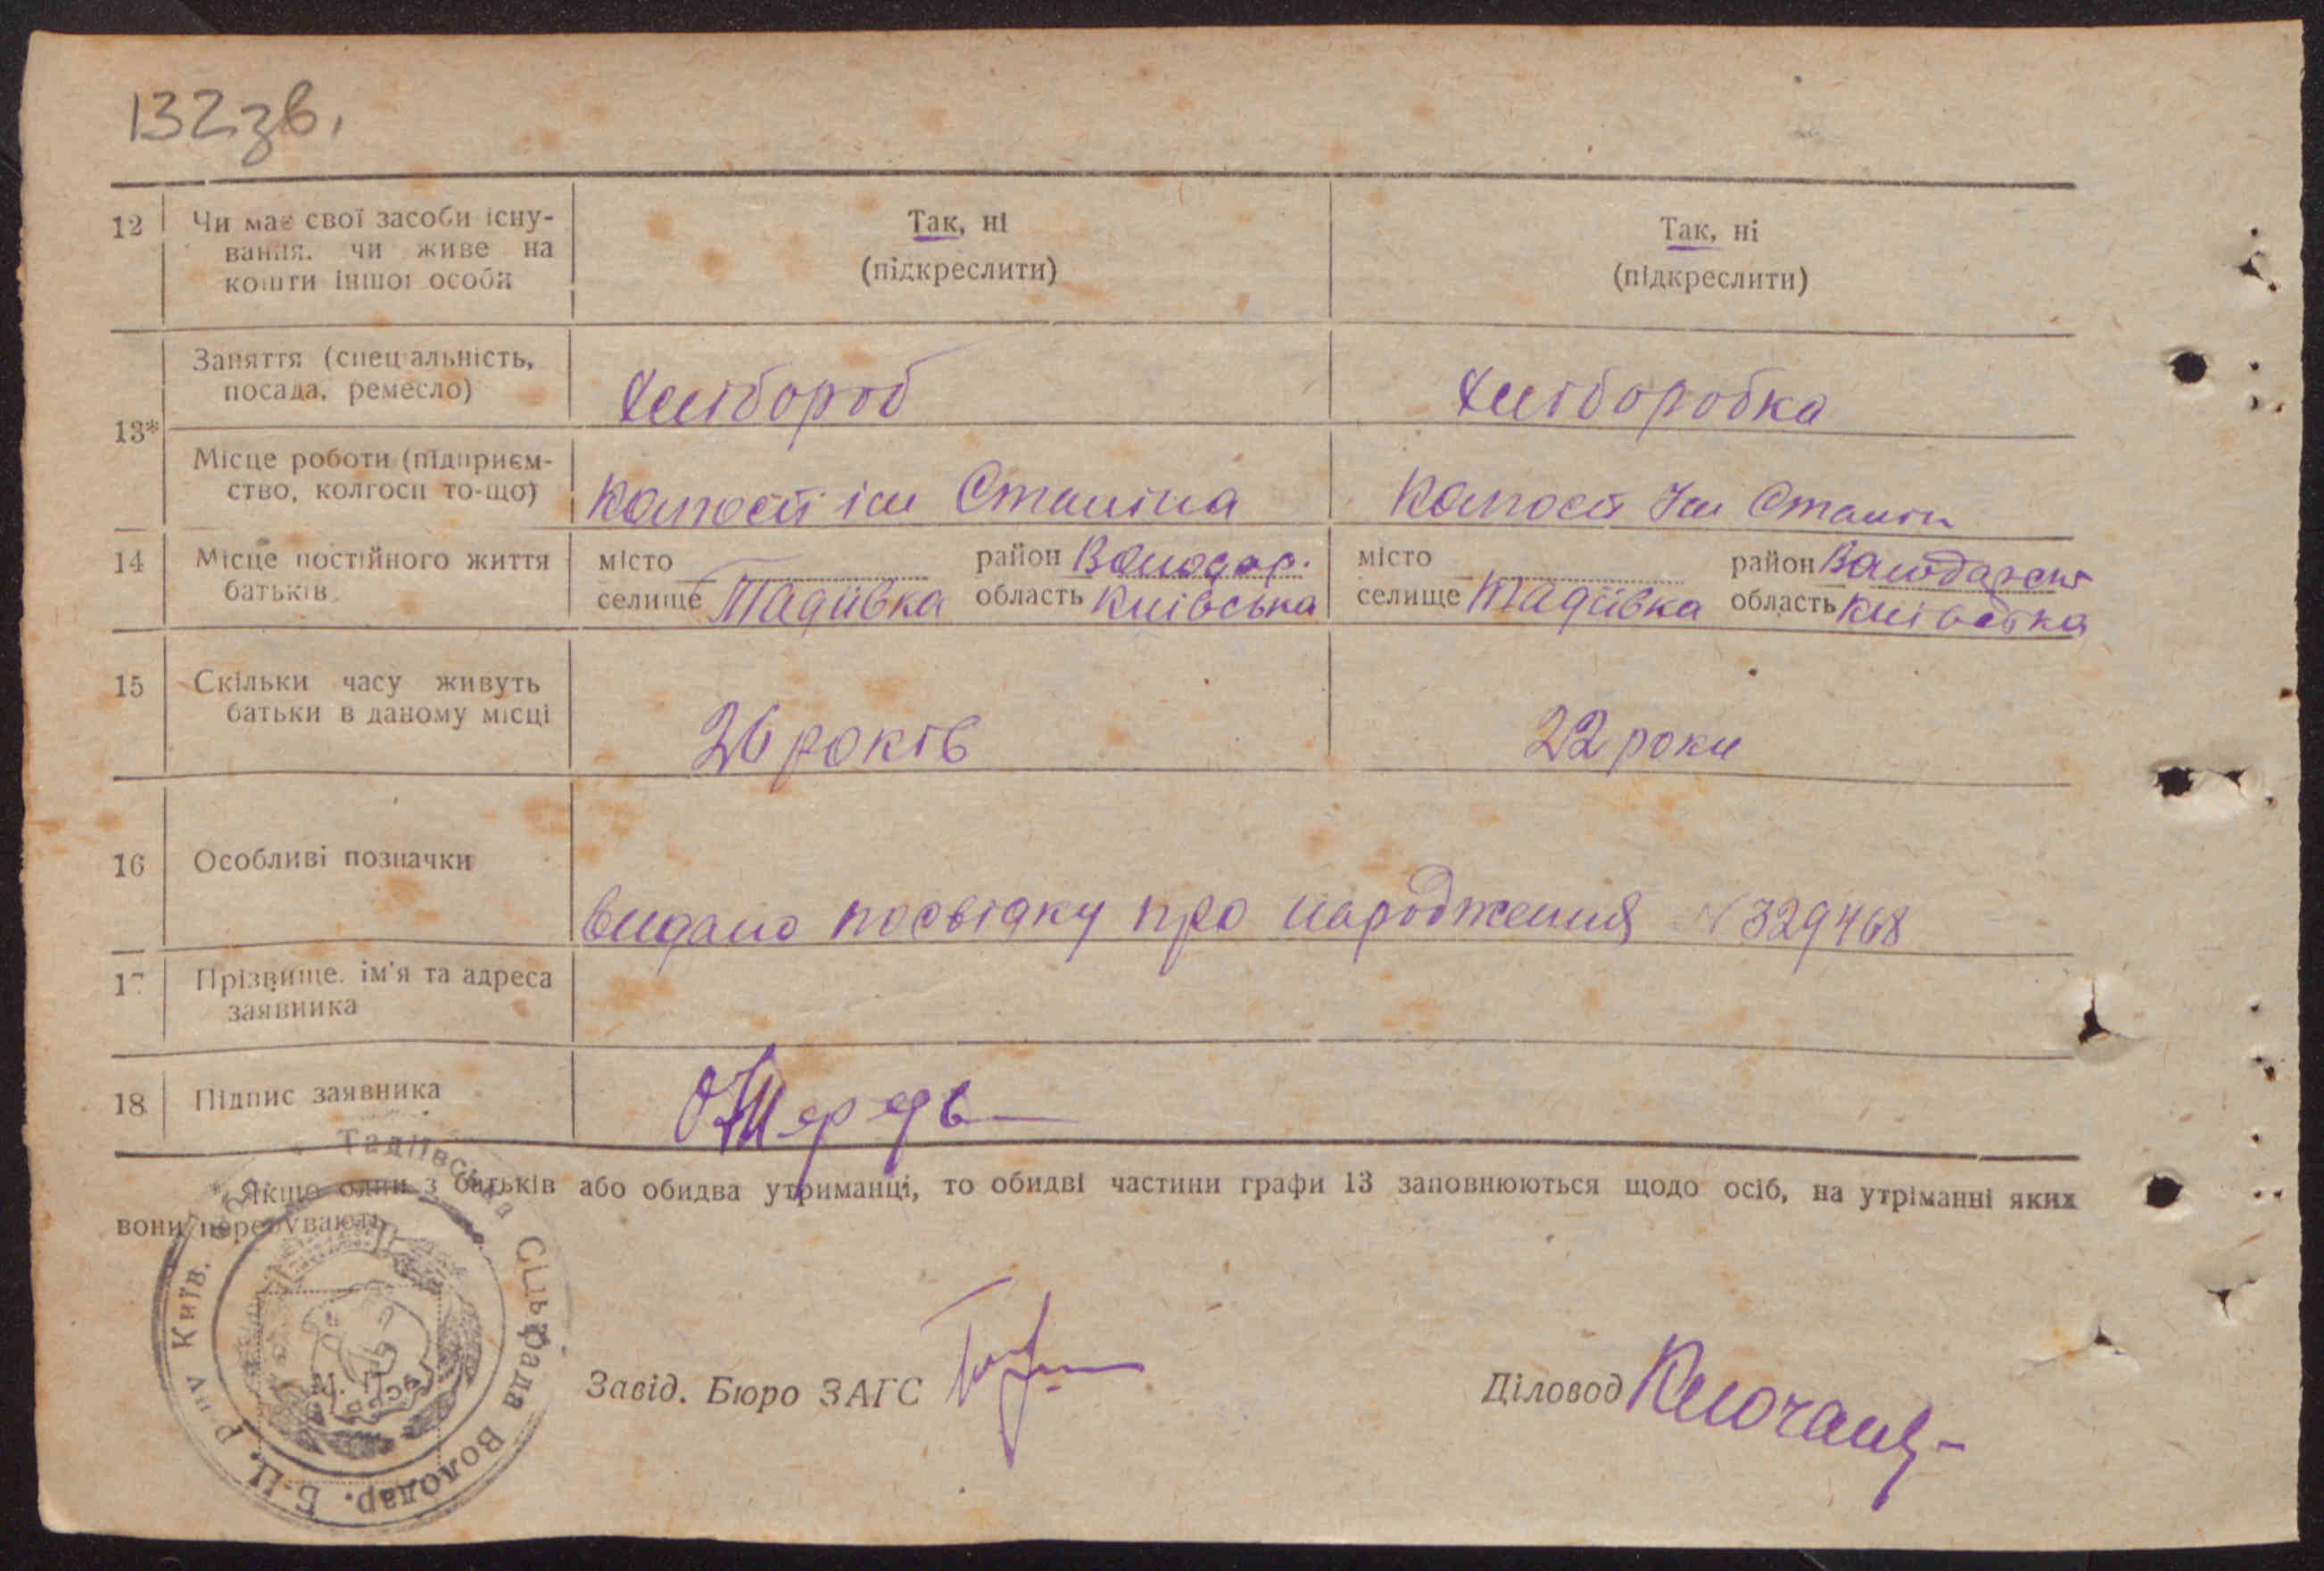 132 зв.
12 Чи має свої засоби існу- Так, ні Так, ні
вання, чи живе на (підкреслити) (підкреслити)
кошти іншої особи
Заняття (спеціальність, хлібороб хліборобка
посада, ремесло)
13*
Місце роботи (підприєм- колгосп ім Сталіна колгосп Ім Сталін
ство, колгосп то-що)
14 Місце постійного життя місто район Володар. місто район Володарськ
батьків селище Тадіївка область Київська селище Тадіївка область Київська
15 Скільки часу живуть 26 років 22 роки
батьки в даному місці
16 Особливі позначки
видано посвідку про народження N 329468
17 Прізвище, ім'я та адреса
заявника
18 Підпис заявника
* Якщо один з батьків або обидва утриманці, то обидві частини графи 13 заповнюються щодо осіб, на утріманні яких
вони перебувають.
Тадіївська Сільрада Володар. Б-Ц. р-ну Київ.
Завід. Бюро ЗАГС Діловод